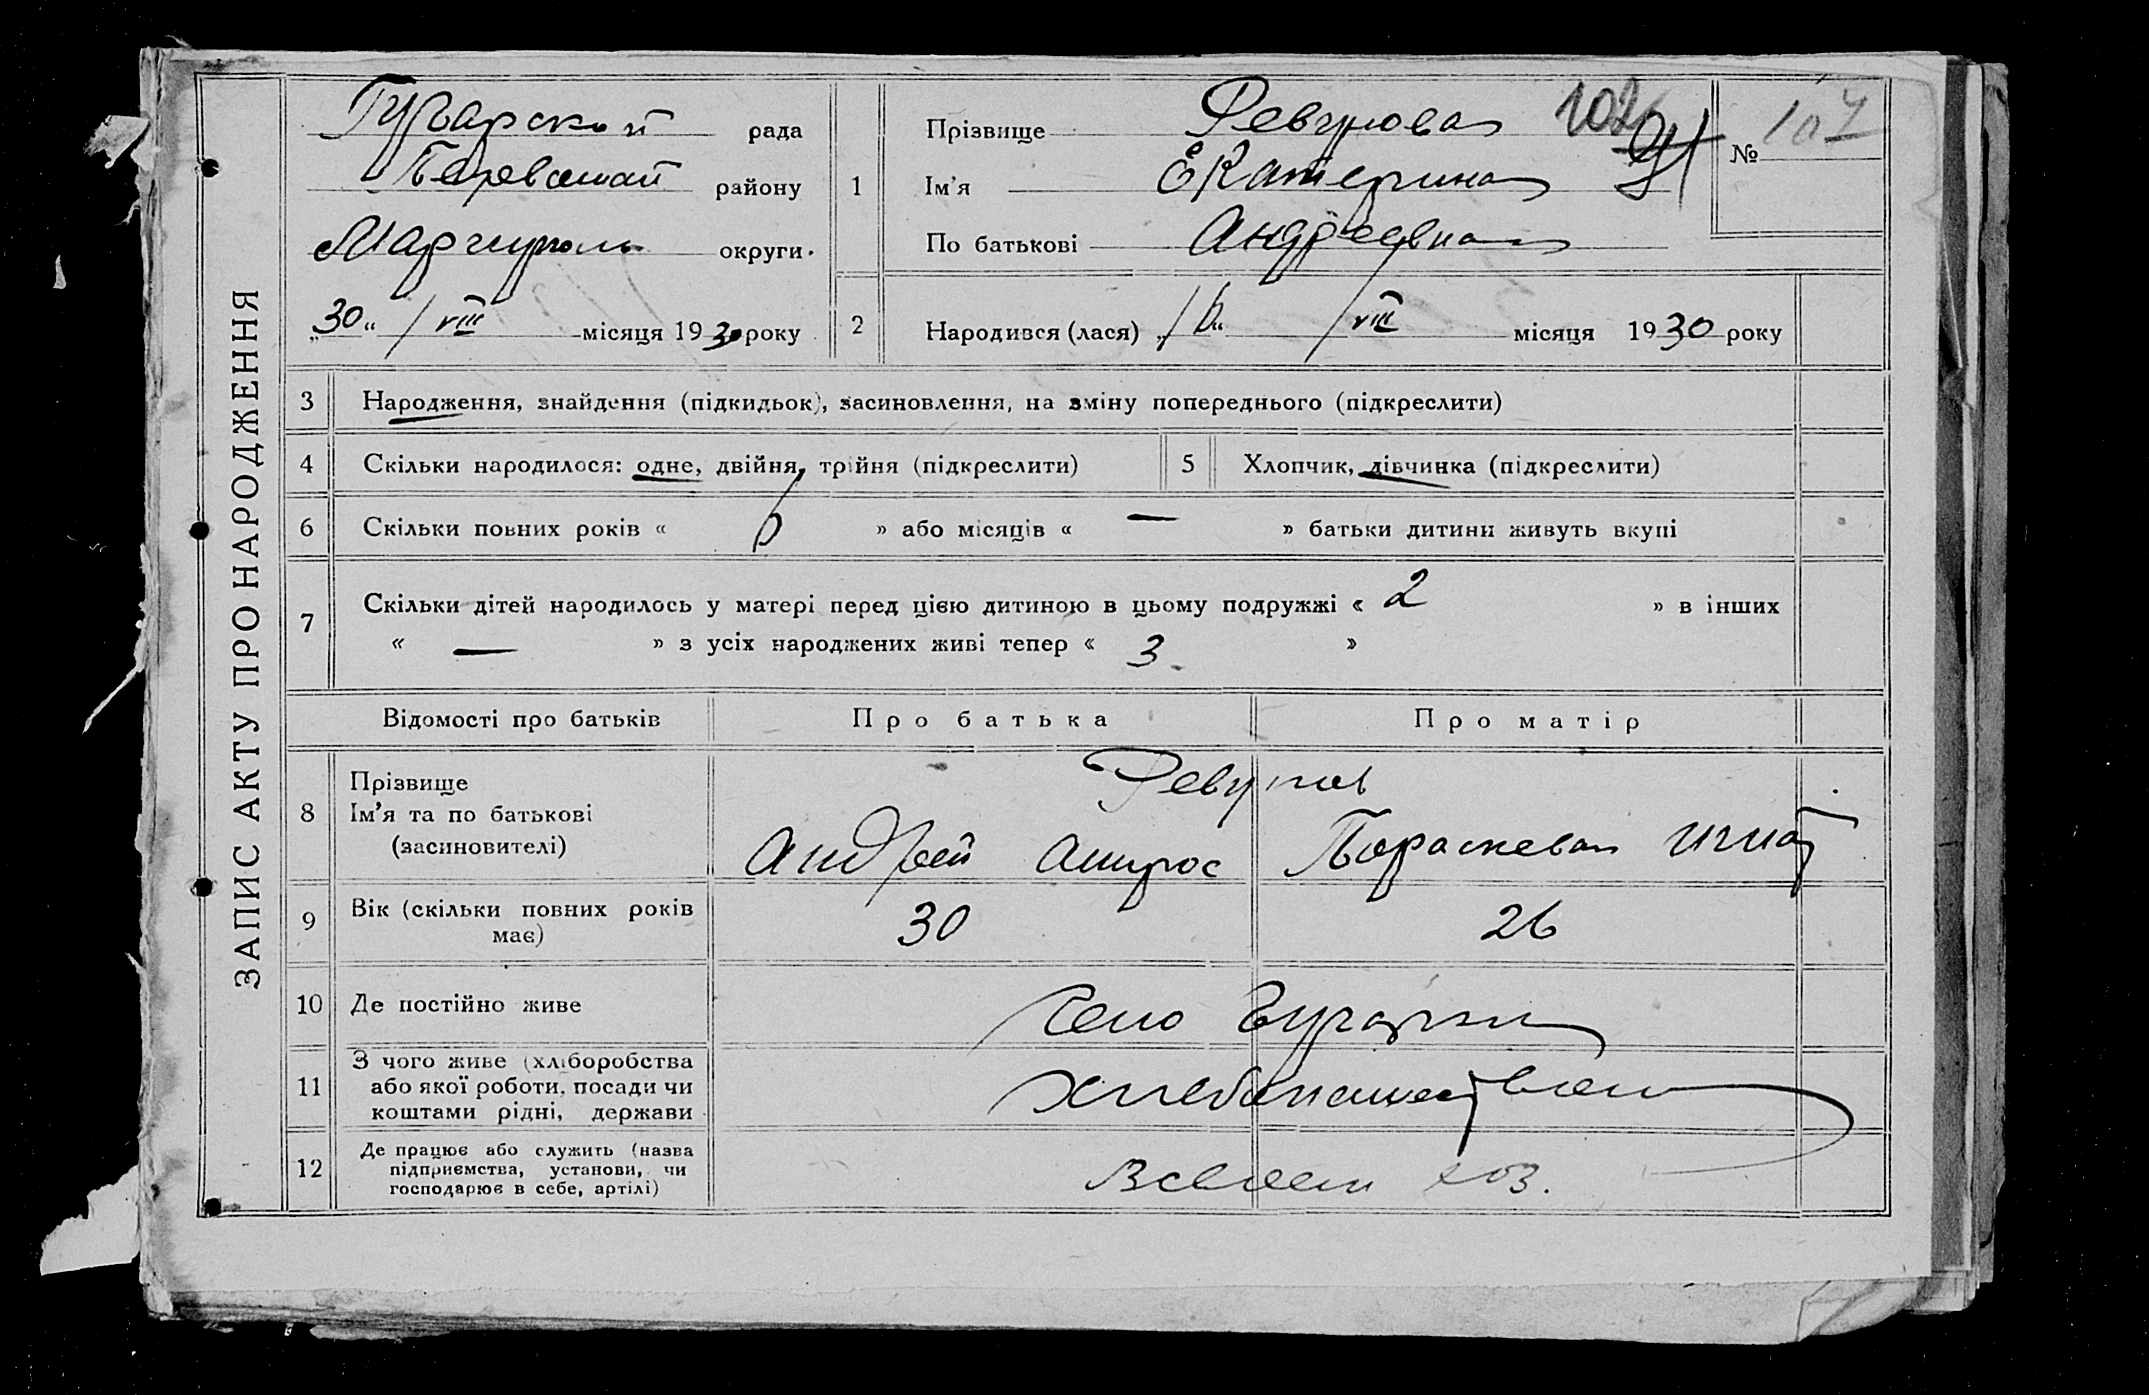 ЗАПИС АКТУ ПРО НАРОДЖЕННЯ
рада
району
Мариуполь округи.
„30“ / VIII місяця 1930 року
1
Прізвище
Ім’я Екатерина
По батькові Андреевна
102
91
№ 107
2
Народився (лася) „ “ / VIII місяця 1930 року
3 Народження, знайдення (підкидьок), засиновлення, на зміну попереднього (підкреслити)
4 Скільки народилося: одне, двійня, трійня (підкреслити)
5 Хлопчик, дівчинка (підкреслити)
6 Скільки повних років « 6 » або місяців « — » батьки дитини живуть вкупі
7 Скільки дітей народилось у матері перед цією дитиною в цьому подружжі « 2 » в інших
« — » з усіх народжених живі тепер « 3 »
Відомості про батьків
Про батька
Про матір
8 Прізвище
Ім’я та по батькові
(засиновителі)
Андрей
Параскева Игнат
9 Вік (скільки повних років
має)
30
26
10 Де постійно живе
Село
11 З чого живе (хліборобства
або якої роботи, посади чи
коштами рідні, держави
хлебопашеством
12 Де працює або служить (назва
підприємства, установи, чи
господарює в себе, артілі)
В своем хоз.